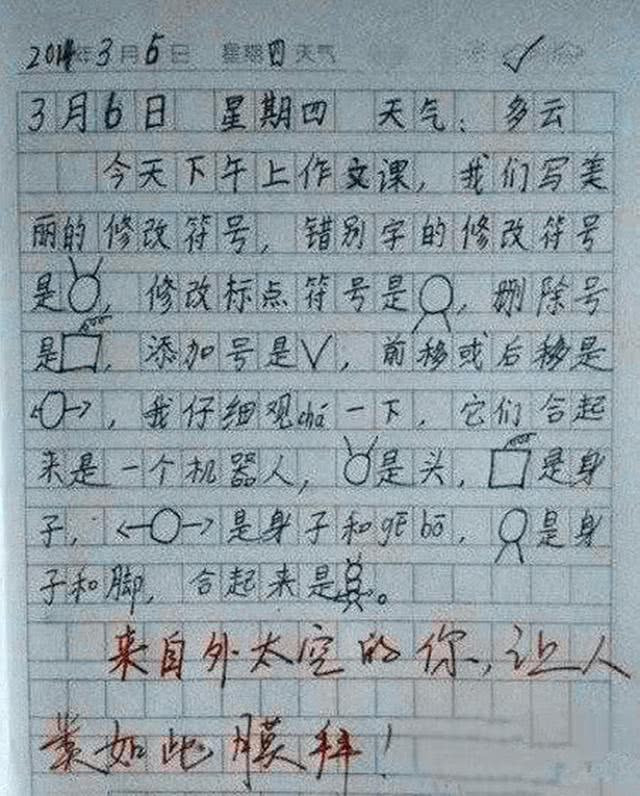 2014年3月6日 星期四 天气
3月6日 星期四 天气：多云
今天下午上作文课，我们写美
丽的修改符号，错别字的修改符号
是，修改标点符号是，删除号
是，添加号是∨，前移或后移是
，我仔细观chá一下，它们合起
来是一个机器人，是头，是身
子，是身子和gē bō，是身
子和脚，合起来是。
来自外太空的你，让人
类如此膜拜！